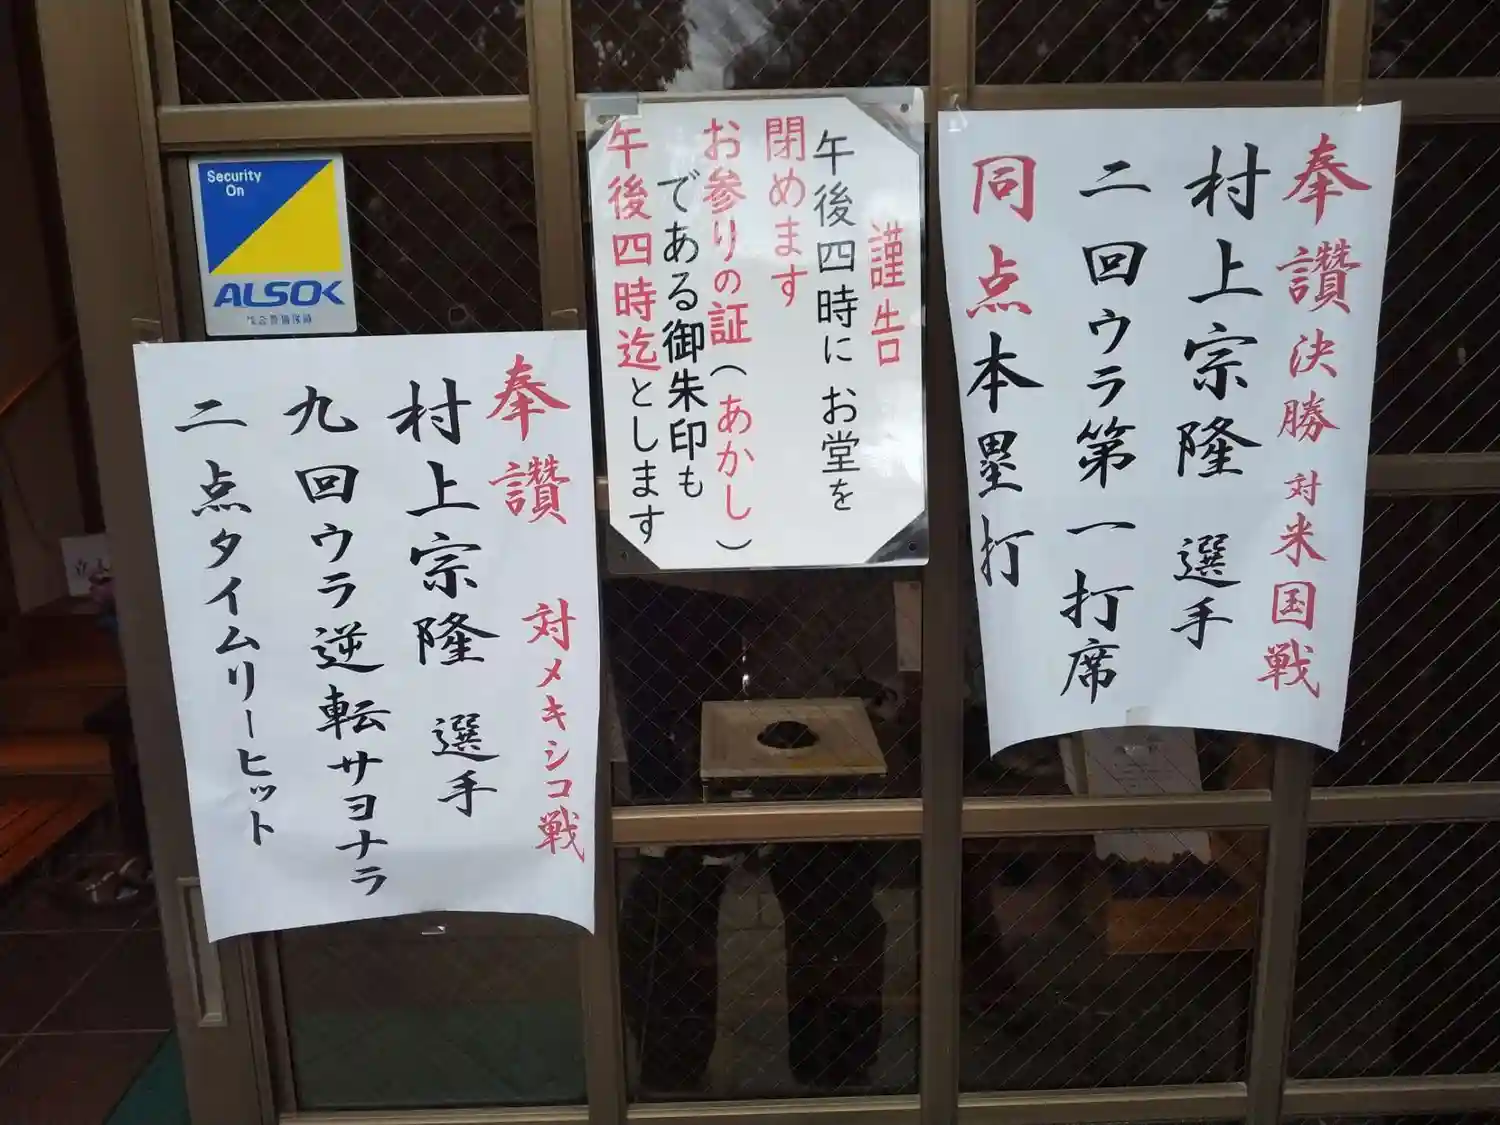 奉讃決勝 対米国戦
村上宗隆 選手
二回ウラ第一打席
同点本塁打
謹告
午後四時に お堂を
閉めます
お参りの証(あかし)
である御朱印も
午後四時迄とします
Security
On
ALSOK
綜合警備保障
奉讃 対メキシコ戦
村上宗隆 選手
九回ウラ逆転サヨナラ
二点タイムリーヒット